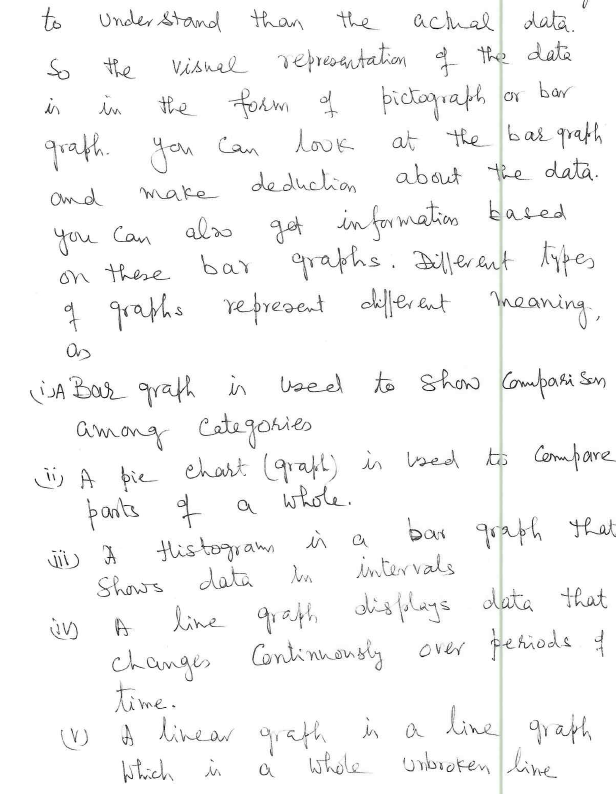 to understand than the actual data.
So the visual representation of the data
is in the form of pictograph or bar
graph. you can look at the bar graph
and make deduction about the data.
you can also get information based
on these bar graphs. Different types
of graphs represent different meaning,
as
(i) A Bar graph is used to show Comparison
among Categories
ii) A pie chart (graph) is used to Compare
parts of a whole.
iii) A Histogram is a bar graph that
Shows data in intervals
iv) A line graph displays data that
changes Continuously over periods of
time.
(v) A linear graph is a line graph
Which is a whole unbroken line